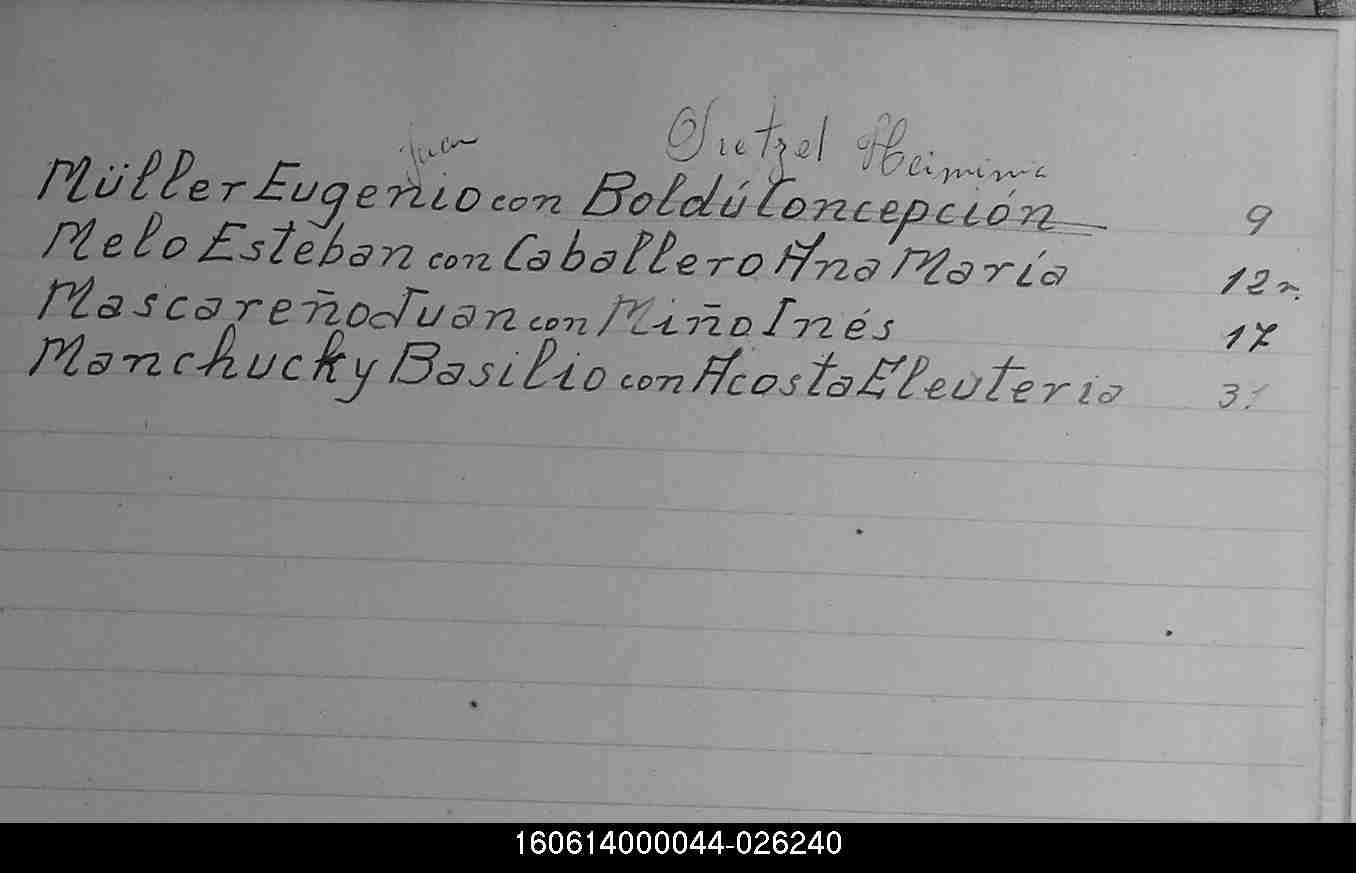 Juan
Müller Eugenio con Boldú Concepción 9
Melo Esteban con Caballero Ana María 12 r.
Mascareño Juan con Miño Inés 17
Manchucky Basilio con Acosta Eleuteria
160614000044-026240